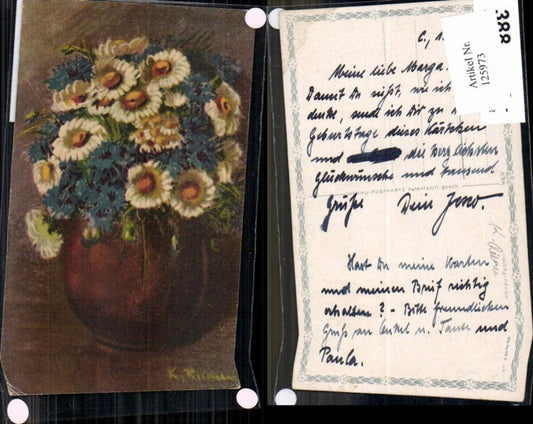 388
Artikel Nr.
125973
C., 1.
Meine liebe Marga
Damit Du siehst, wie ich
denke, sende ich Dir zu
Geburtstage dieses Kärtchen
und die herzlichsten
Glückwünsche und tausend
Grüße Dein
Hast Du meine Karten
und meinen Brief richtig
erhalten? - Bitte freundlichen
Gruß an Onkel u. Tante und
Paula.
-POSTKARTE
K.